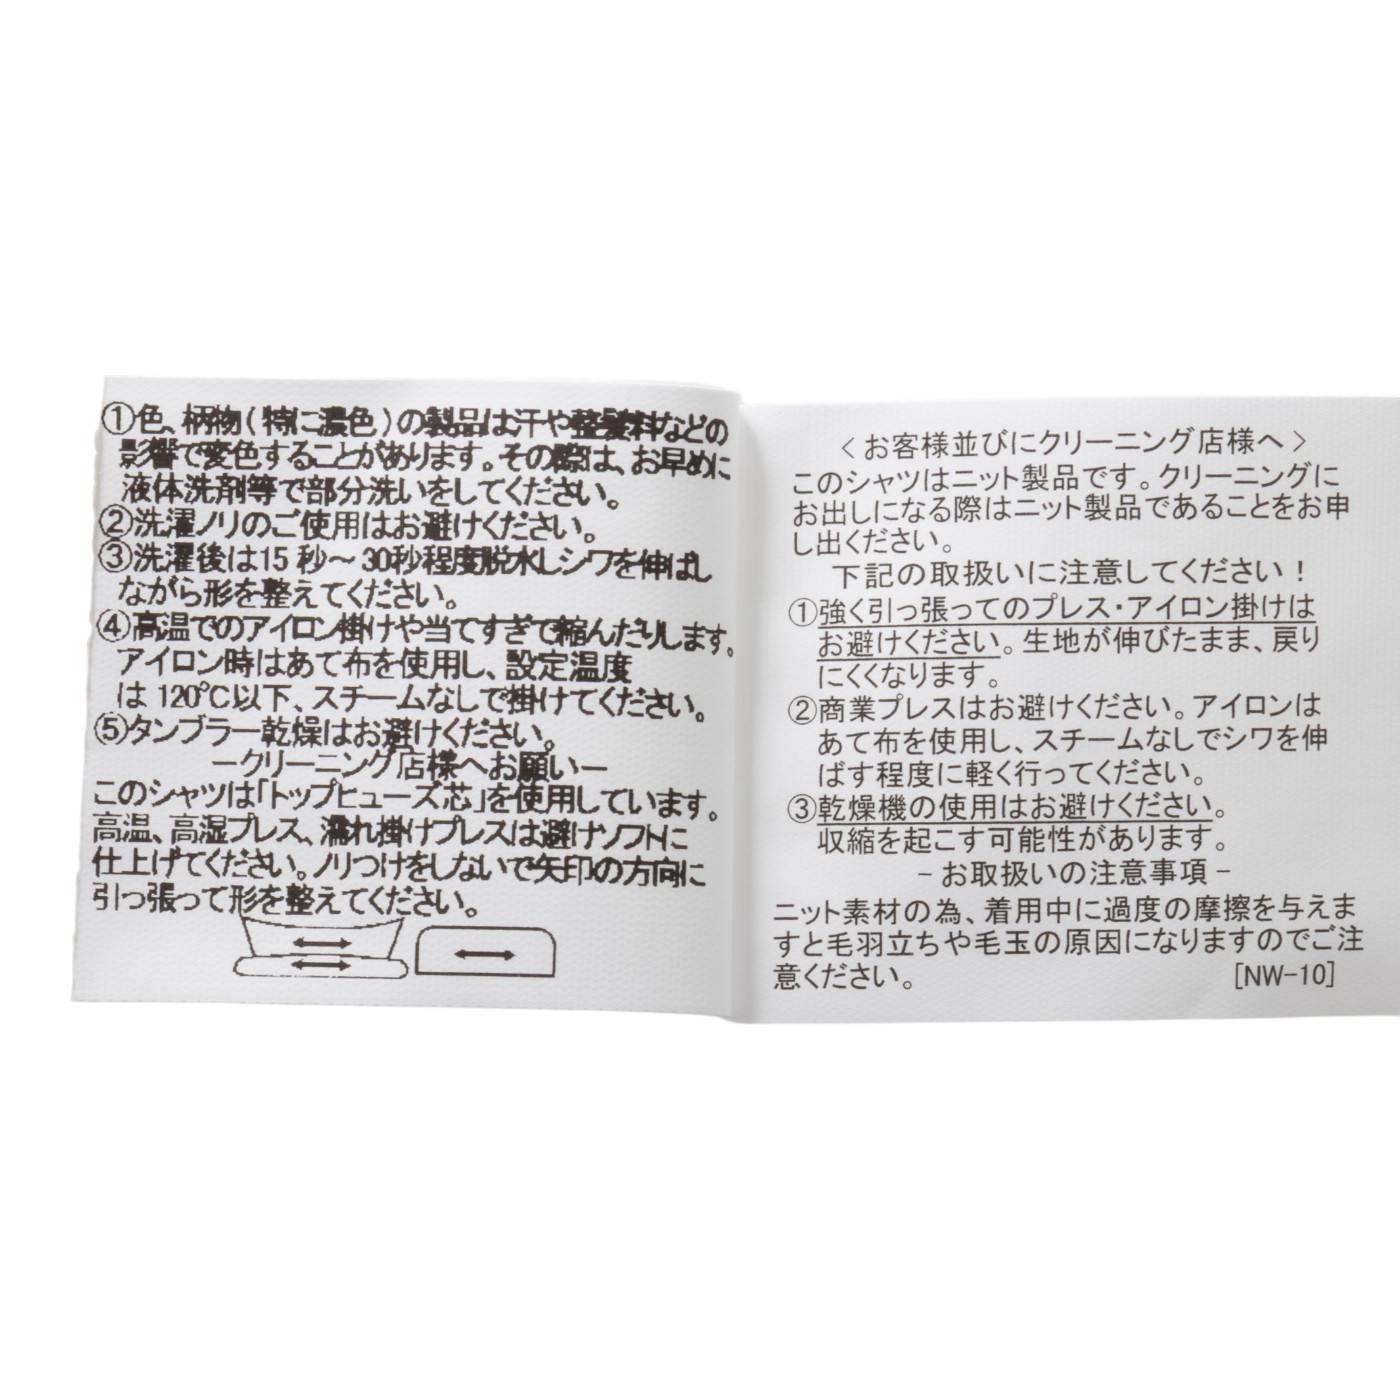 ①色、柄物(特に濃色)の製品は汗や整髪料などの
影響で変色することがあります。その際は、お早めに
液体洗剤等で部分洗いをしてください。
②洗濯ノリのご使用はお避けください。
③洗濯後は15秒～30秒程度脱水しシワを伸ばし
ながら形を整えてください。
④高温でのアイロン掛けや当てすぎで縮んだりします。
アイロン時はあて布を使用し、設定温度
は120℃以下、スチームなしで掛けてください。
⑤タンブラー乾燥はお避けください。
－クリーニング店様へお願い－
このシャツは「トップヒューズ芯」を使用しています。
高温、高湿プレス、濡れ掛けプレスは避けソフトに
仕上げてください。ノリつけをしないで矢印の方向に
引っ張って形を整えてください。
＜お客様並びにクリーニング店様へ＞
このシャツはニット製品です。クリーニングに
お出しになる際はニット製品であることをお申
し出ください。
下記の取扱いに注意してください！
①強く引っ張ってのプレス・アイロン掛けは
お避けください。生地が伸びたまま、戻り
にくくなります。
②商業プレスはお避けください。アイロンは
あて布を使用し、スチームなしでシワを伸
ばす程度に軽く行ってください。
③乾燥機の使用はお避けください。
収縮を起こす可能性があります。
－お取扱いの注意事項－
ニット素材の為、着用中に過度の摩擦を与えま
すと毛羽立ちや毛玉の原因になりますのでご注
意ください。 [NW-10]